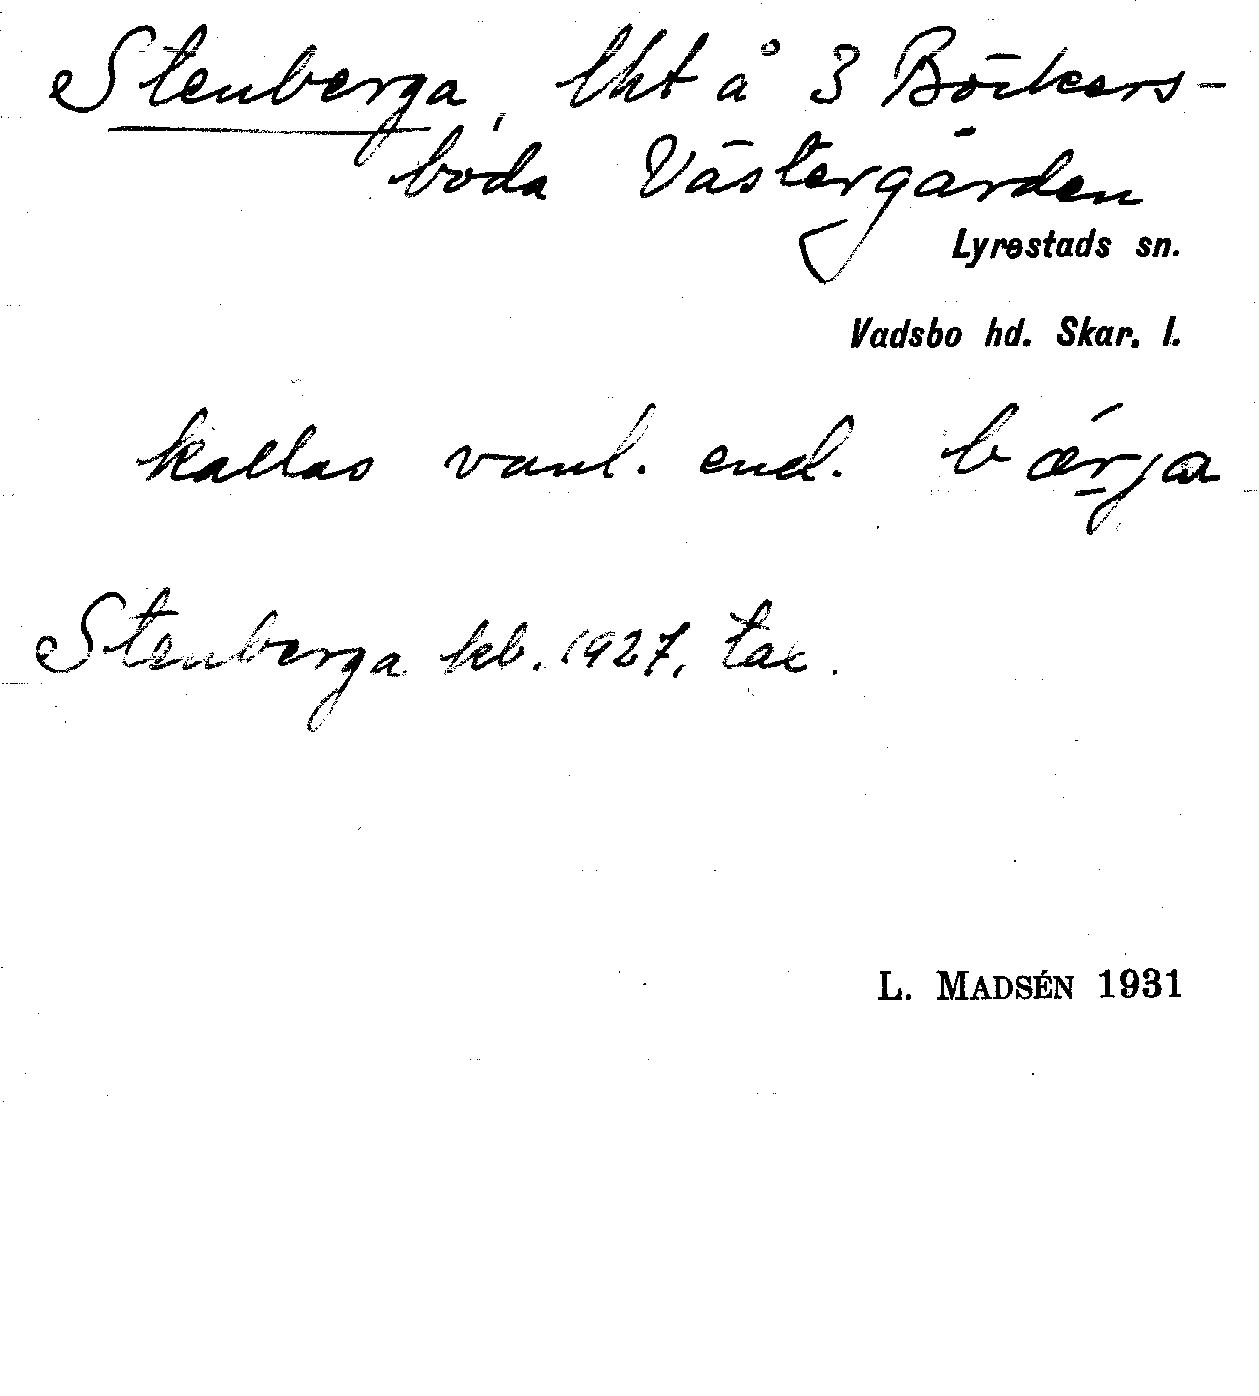 Stenberga, lht å 3 Börkers-
boda Västergården
Lyrestads sn.
Vadsbo hd. Skar. l.
kallas vanl. end. bǽrja
Stenberga kb. 1927, tax.
L. MADSÉN 1931